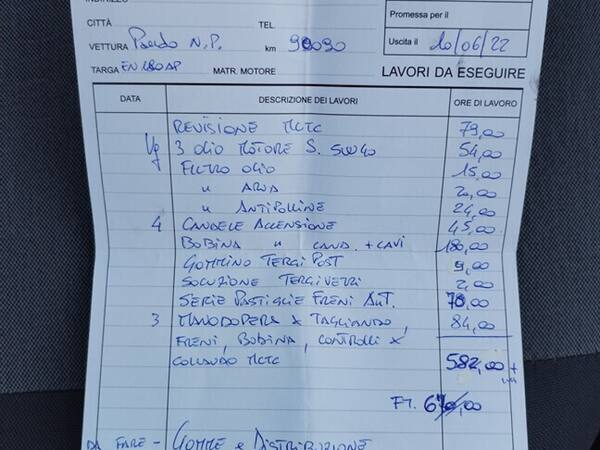 INDIRIZZO
CITTÀ TEL. Promessa per il
VETTURA Panda N.P. km 90090 Uscita il 20/06/22
TARGA EN180AP MATR. MOTORE LAVORI DA ESEGUIRE
DATA DESCRIZIONE DEI LAVORI ORE DI LAVORO
REVISIONE MCTC 79,00
Kg 3 OLIO MOTORE S. 5W40 54,00
FILTRO OLIO 15,00
" ARIA 20,00
" ANTIPOLLINE 24,00
4 CANDELE ACCENSIONE 45,00
BOBINA " CAND. + CAVI 180,00
GOMMINO TERGI POST 9,00
SOLUZIONE TERGIVETRI 2,00
SERIE PASTIGLIE FRENI ANT. 70,00
3 MANODOPERA x TAGLIANDO, 84,00
FRENI, BOBINA, CONTROLLI x
COLLAUDO MCTC 582,00 +
FT. 670,00
DA FARE - GOMME e DISTRIBUZIONE